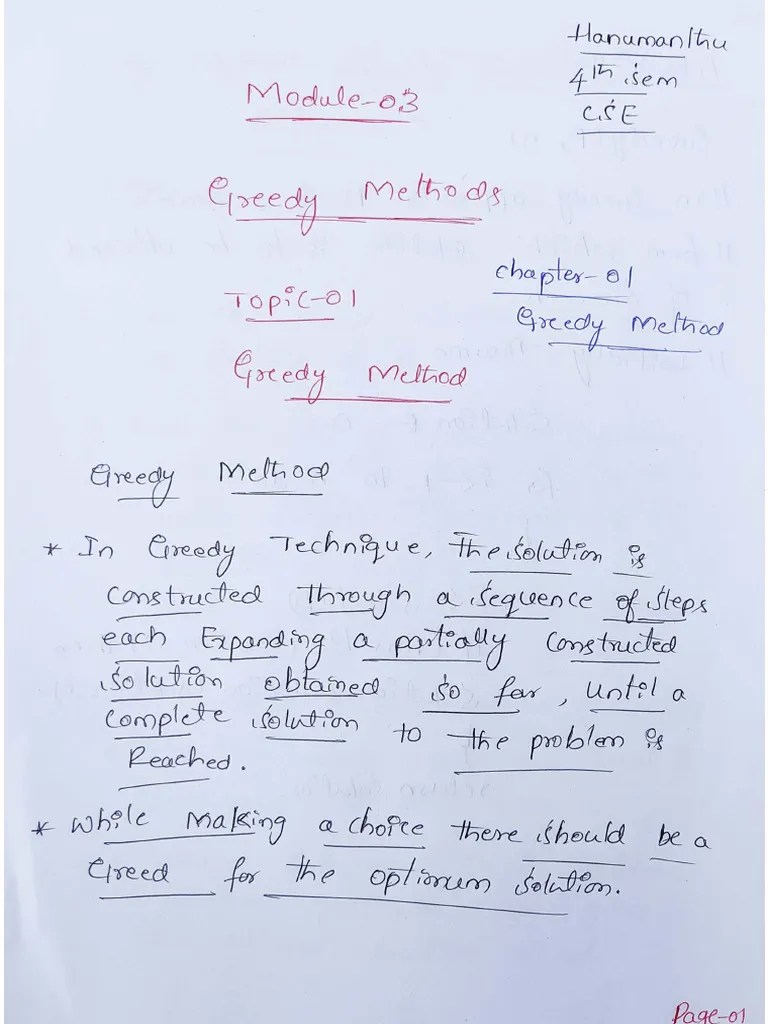 Hanumanthu
4th sem
CSE
Module-03
Greedy Methods
chapter-01
Greedy Method
Topic-01
Greedy Method
Greedy Method
* In Greedy Technique, The solution is
constructed through a sequence of steps
each Expanding a partially constructed
solution obtained so far, until a
complete solution to the problem is
Reached.
* While making a choice there should be a
Greed for the optimum solution.
Page-01